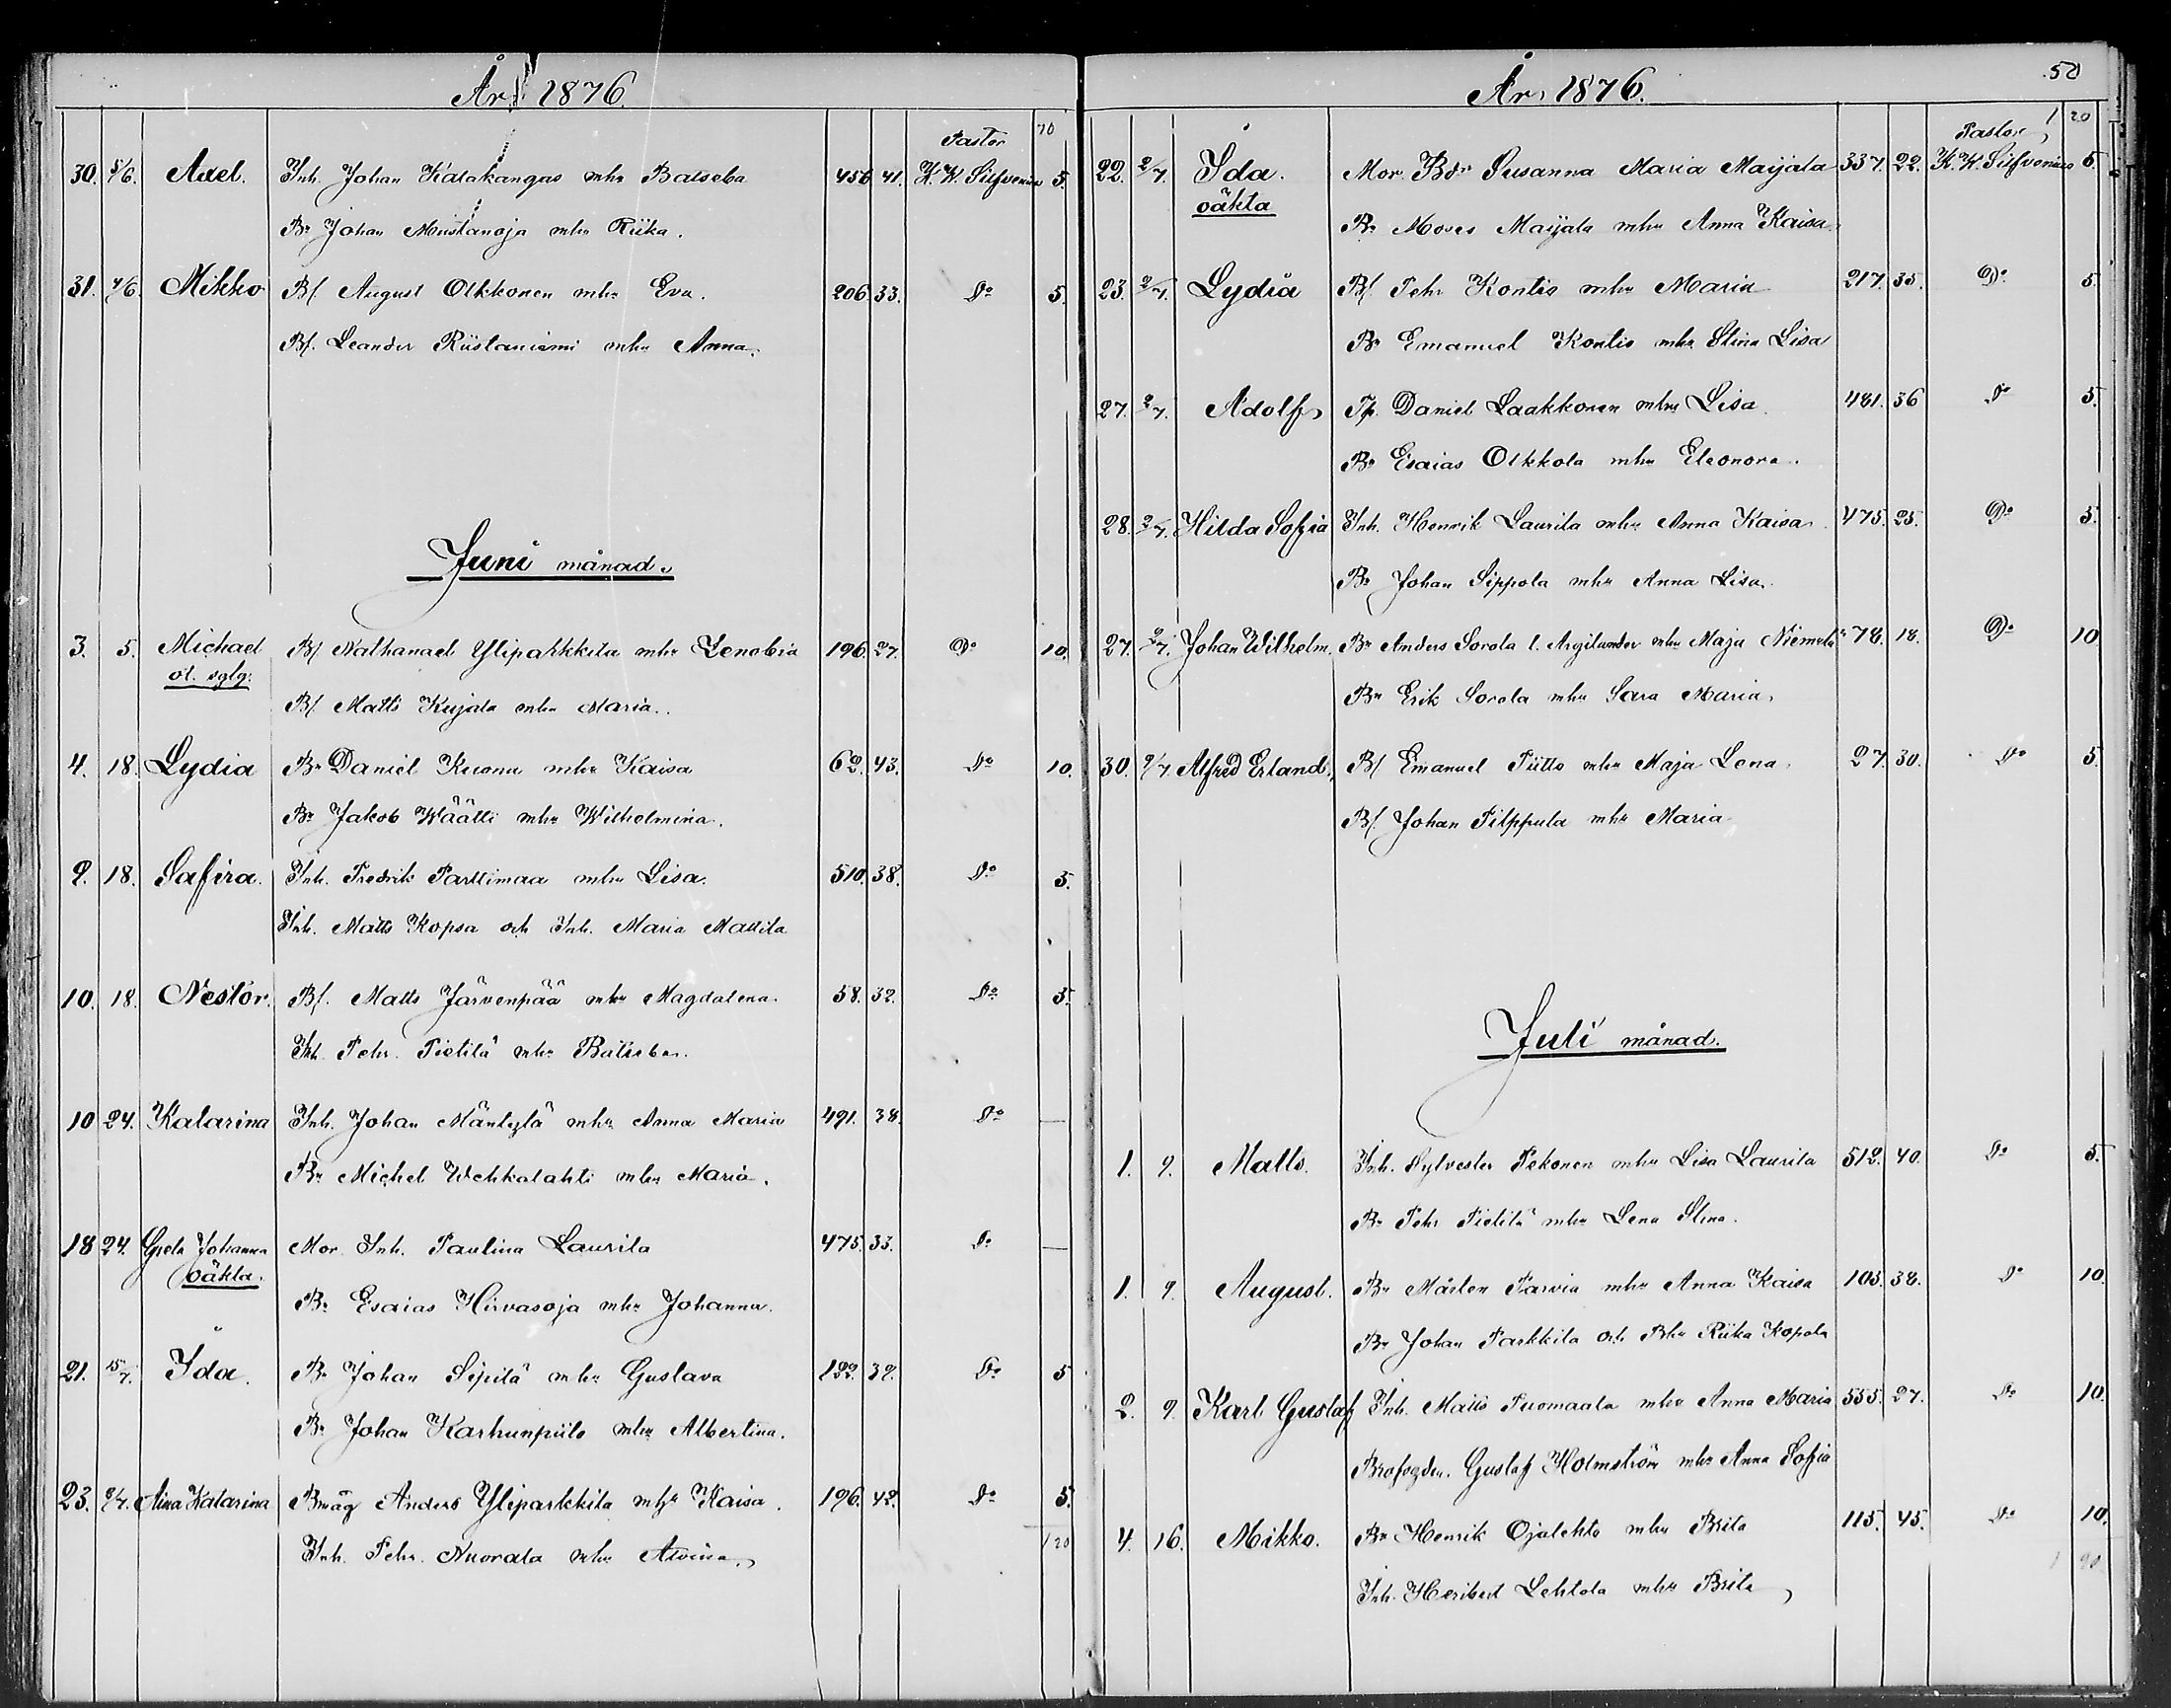 År 1876.
Pastor 70
30. 5/6. Axel. Inh. Johan Katakangas mhu Batseba 456 41. K. W. Silfvenius 5.
Br Johan Mustanoja mhu Riika.
31. 4/6. Mikko Bf. August Olkkonen mhu Eva. 206 33. Do 5.
Bf. Leander Riistaniemi mhu Anna.
Juni månad.
3. 5. Michael Bf Nathanael Yliparkkila mhu Zenobia 196. 27. Do 10.
öt. sglg:
Bf. Matts Kujala mhu Maria.
4. 18. Lydia Br Daniel Kuonu mhu Kaisa 62. 43. Do 10.
Br Jakob Wäätti mhu Wilhelmina.
9. 18. Safira. Inh. Fredrik Parttimaa mhu Lisa. 510. 38. Do 5.
Inh. Matts Kopsa och Inh. Maria Mattila
10. 18. Nestor. Bf. Matts Järvenpää mhu Magdalena. 58. 32. Do 5.
Inh. Pehr Pietilä mhu Batseba.
10 24. Katarina Inh. Johan Mäntylä mhu Anna Maria 491. 38. Do —
Br Michel Wehkalahti mhu Maria.
18 24. Greta Johanna Mor Inh. Paulina Laurila 475. 33. Do —
oäkta.
Br Esaias Hirvasoja mhu Johanna.
21. Ida. Br Johan Sipilä mhu Gustava 132. 32. Do 5
Br Johan Karhunpiilo mhu Albertina.
23. 2/7. Aina Katarina Bmåg Anders Yliparkkila mhu Kaisa. 196. 42. Do 5.
Inh. Pehr Nuorala mhu Alvina. 1 20
År 1876. 50
Pastor 1 20
22. 2/7. Ida. Mor Bdr Susanna Maria Maijala 337. 22. K. W. Silfvenius 5.
oäkta
Br Moses Maijala mhu Anna Kaisa.
23. 2/7. Lydia Bf. Pehr Kontio mhu Maria 217. 35. Do 5.
Br Emanuel Kontio mhu Stina Lisa
27. 2/7. Adolf Tp. Daniel Laakkonen mhu Lisa. 481. 36 Do 5.
Br Esaias Olkkola mhu Eleonora.
28. 2/7. Hilda Sofia Inh. Henrik Laurila mhu Anna Kaisa. 475. 25. Do 5.
Br Johan Sippola mhu Anna Lisa.
27. 2/7. Johan Wilhelm. Br Anders Sorola l. Argilander mhu Maja Niemelä 78. 18. Do 10
Br Erik Sorola mhu Sara Maria.
30. 9/7. Alfred Erland. Bf Emanuel Piitto mhu Maja Lena. 27. 30. Do 5.
Bf. Johan Filppula mhu Maria
Juli månad.
1. 9. Matts. Inh. Sylvester Pekonen mhu Lisa Laurila 512. 40. Do 5.
Br Pehr Pietilä mhu Lena Stina.
1. 9. August. Br Mårten Parvia mhu Anna Kaisa 103. 38. Do 10.
Br Johan Parkkila och Bhu Riika Kopola
2. 9. Karl Gustaf Inh. Matts Tuomaala mhu Anna Maria 555. 27. Do 10.
Brofogden. Gustaf Holmström mhu Anna Sofia
4. 16. Mikko. Br Henrik Ojalehto mhu Brita 115. 45. Do 10.
Inh. Heribert Lehtola mhu Brita 1 90